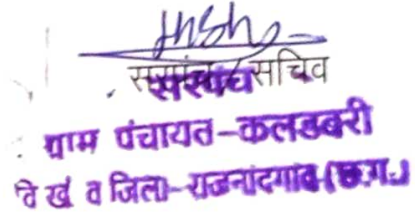 सरपंच/सचिव
सरपंच
ग्राम पंचायत-कलडबरी
वि खं व जिला-राजनांदगांव (छ.ग.)